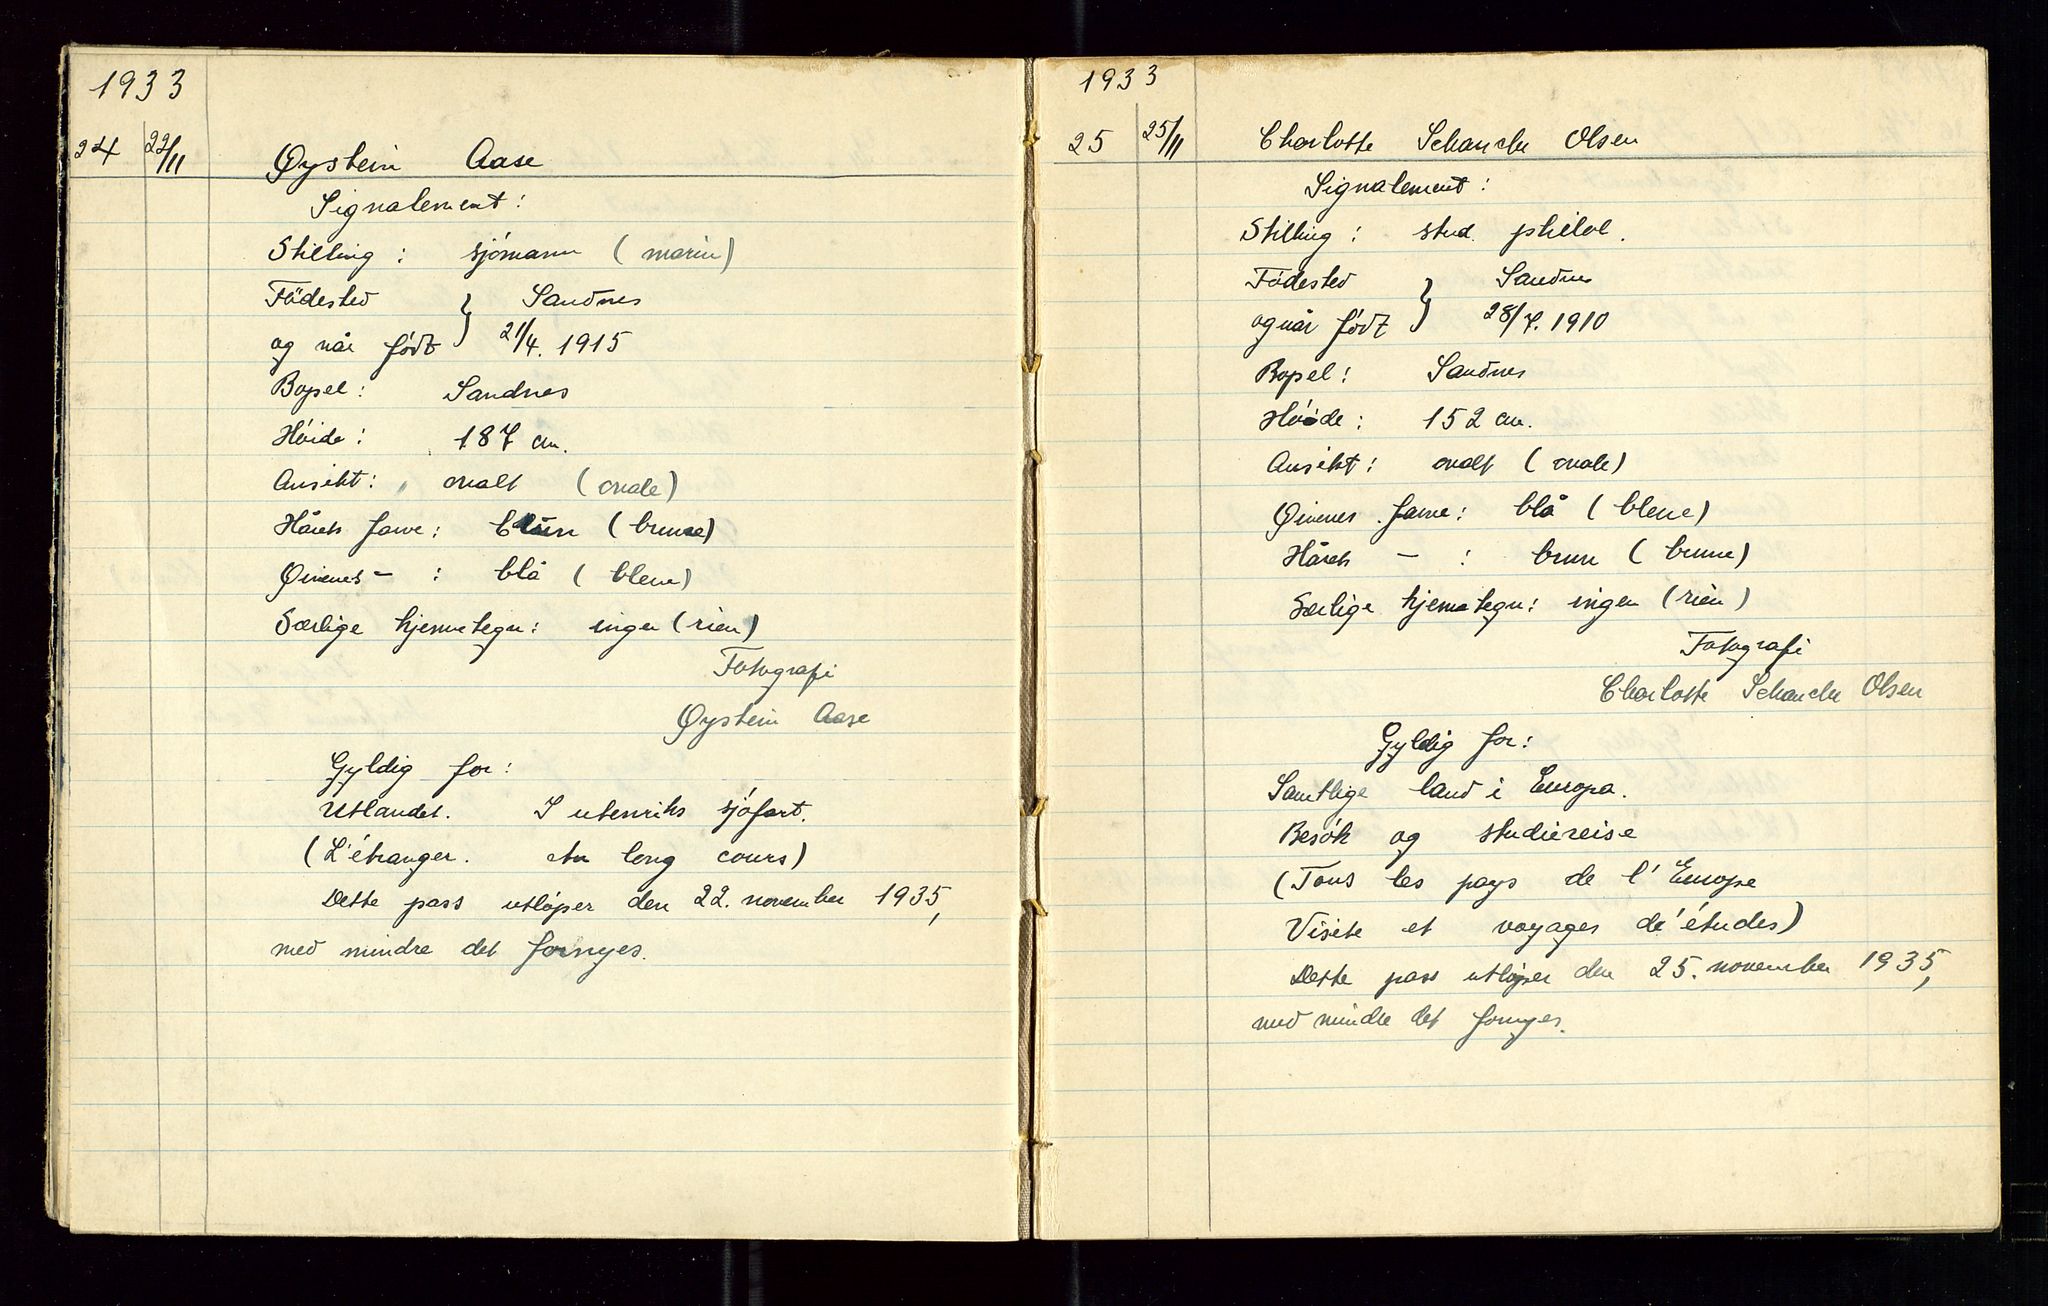 1933
24 22/11 Øystein Aase
Signalement:
Stilling: sjómann (marin)
Födested } Sandnes
og når født } 21/4. 1915
Bopel: Sandnes
Høide: 187 cm.
Ansikt: ovalt (ovale)
Hårets farve: brun (brune)
Øinenes - : blå (bleue)
Særlige kjennetegn: ingen (rien)
Fotografi
Øystein Aase
Gyldig for:
Utlandet. I utenriks sjøfart.
(L'étranger. au long cours)
Dette pass utløper den 22. november 1935,
med mindre det fornyes.
1933
25 25/11 Charlotte Schanche Olsen
Signalement:
Stilling: stud. philol.
Fødested } Sandnes
og når født } 28/7. 1910
Bopel: Sandnes
Høide: 152 cm.
Ansikt: ovalt (ovale)
Øinenes farve: blå (bleue)
Hårets - : brun (brune)
Særlige kjennetegn: ingen (rien)
Fotografi
Charlotte Schanche Olsen
Gyldig for:
Samtlige land i Europa.
Besøk og studiereise
(Tous les pays de l'Europe
Visite et voyages de'études)
Dette pass utløper den 25. november 1935,
med mindre det fornyes.